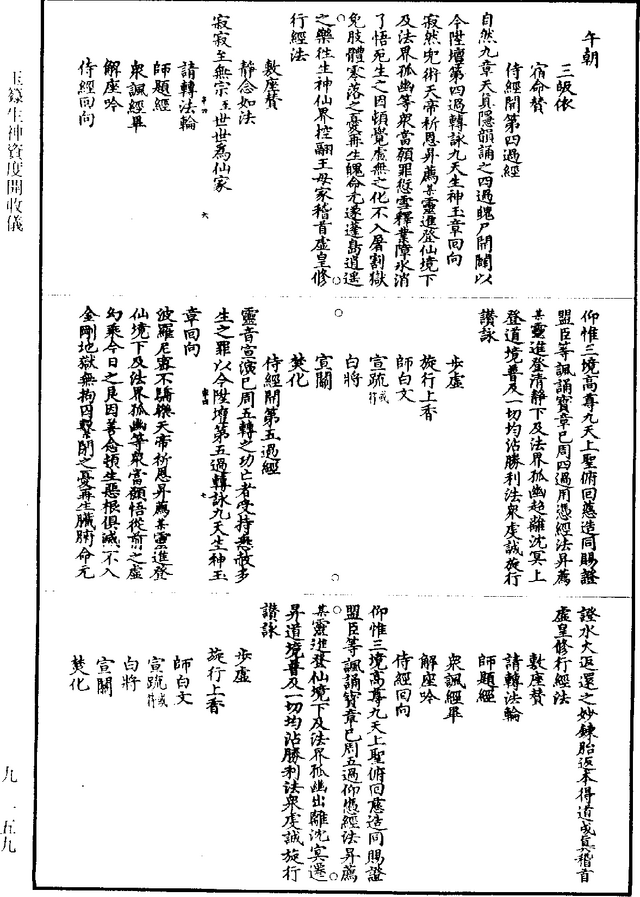 午朝
三皈依
宿命贊
侍經開第四過經
自然九章天真隱韻誦之四過魄尸閉關以
今陞壇第四過轉詠九天生神玉章回向
寂然兜術天帝祈恩昇薦某靈進登仙境下
及法界孤幽等衆當願罪愆雪釋業障氷消
了悟死生之因頓覺虛無之化不入屠割獄
免肢體零落之憂再生魄命元遂蓬島逍遥
之樂徃生神仙界控翮王母家稽首虛皇修
行經法
敷座贊
靜念如法
寂寂至無宗至世世爲仙家
請轉法輪
師題經
衆諷經畢
解座吟
侍經回向
仰惟三境高尊九天上聖俯回慈造同賜證
盟臣等諷誦寶章已周四過用憑經法昇薦
某靈進登清靜下及法界孤幽超離沈冥上
登道境普及一切均沾勝利法衆虔誠旋行
讚詠
步虛
旋行上香
師白文
宣䟽或符
白將
宣關
焚化
侍經開第五過經
靈音宣演已周五轉之功亡者受持悉赦多
生之罪以今陞壇第五過轉詠九天生神玉
章回向
波羅尼密不驕樂天帝祈恩昇薦某靈進登
仙境下及法界孤幽等衆當願悟從前之虛
幻乘今日之良因善念頓生惡根俱滅不入
金剛地獄無拘囚繫閉之憂再生臟腑命元
證水火返還之妙鍊胎返本得道成真稽首
虛皇修行經法
敷座贊
請轉法輪
師題經
衆諷經畢
解座吟
侍經回向
仰惟三境高尊九天上聖俯回慈造同賜證
盟臣等諷誦寶章已周五過仰憑經法昇薦
某靈進登仙境下及法界孤幽出離沈冥還
昇道境普及一切均沾勝利法衆虔誠旋行
讚詠
步虛
旋行上香
師白文
宣䟽或符
白將
宣關
焚化
玉籙生神資度開收儀
九一五九